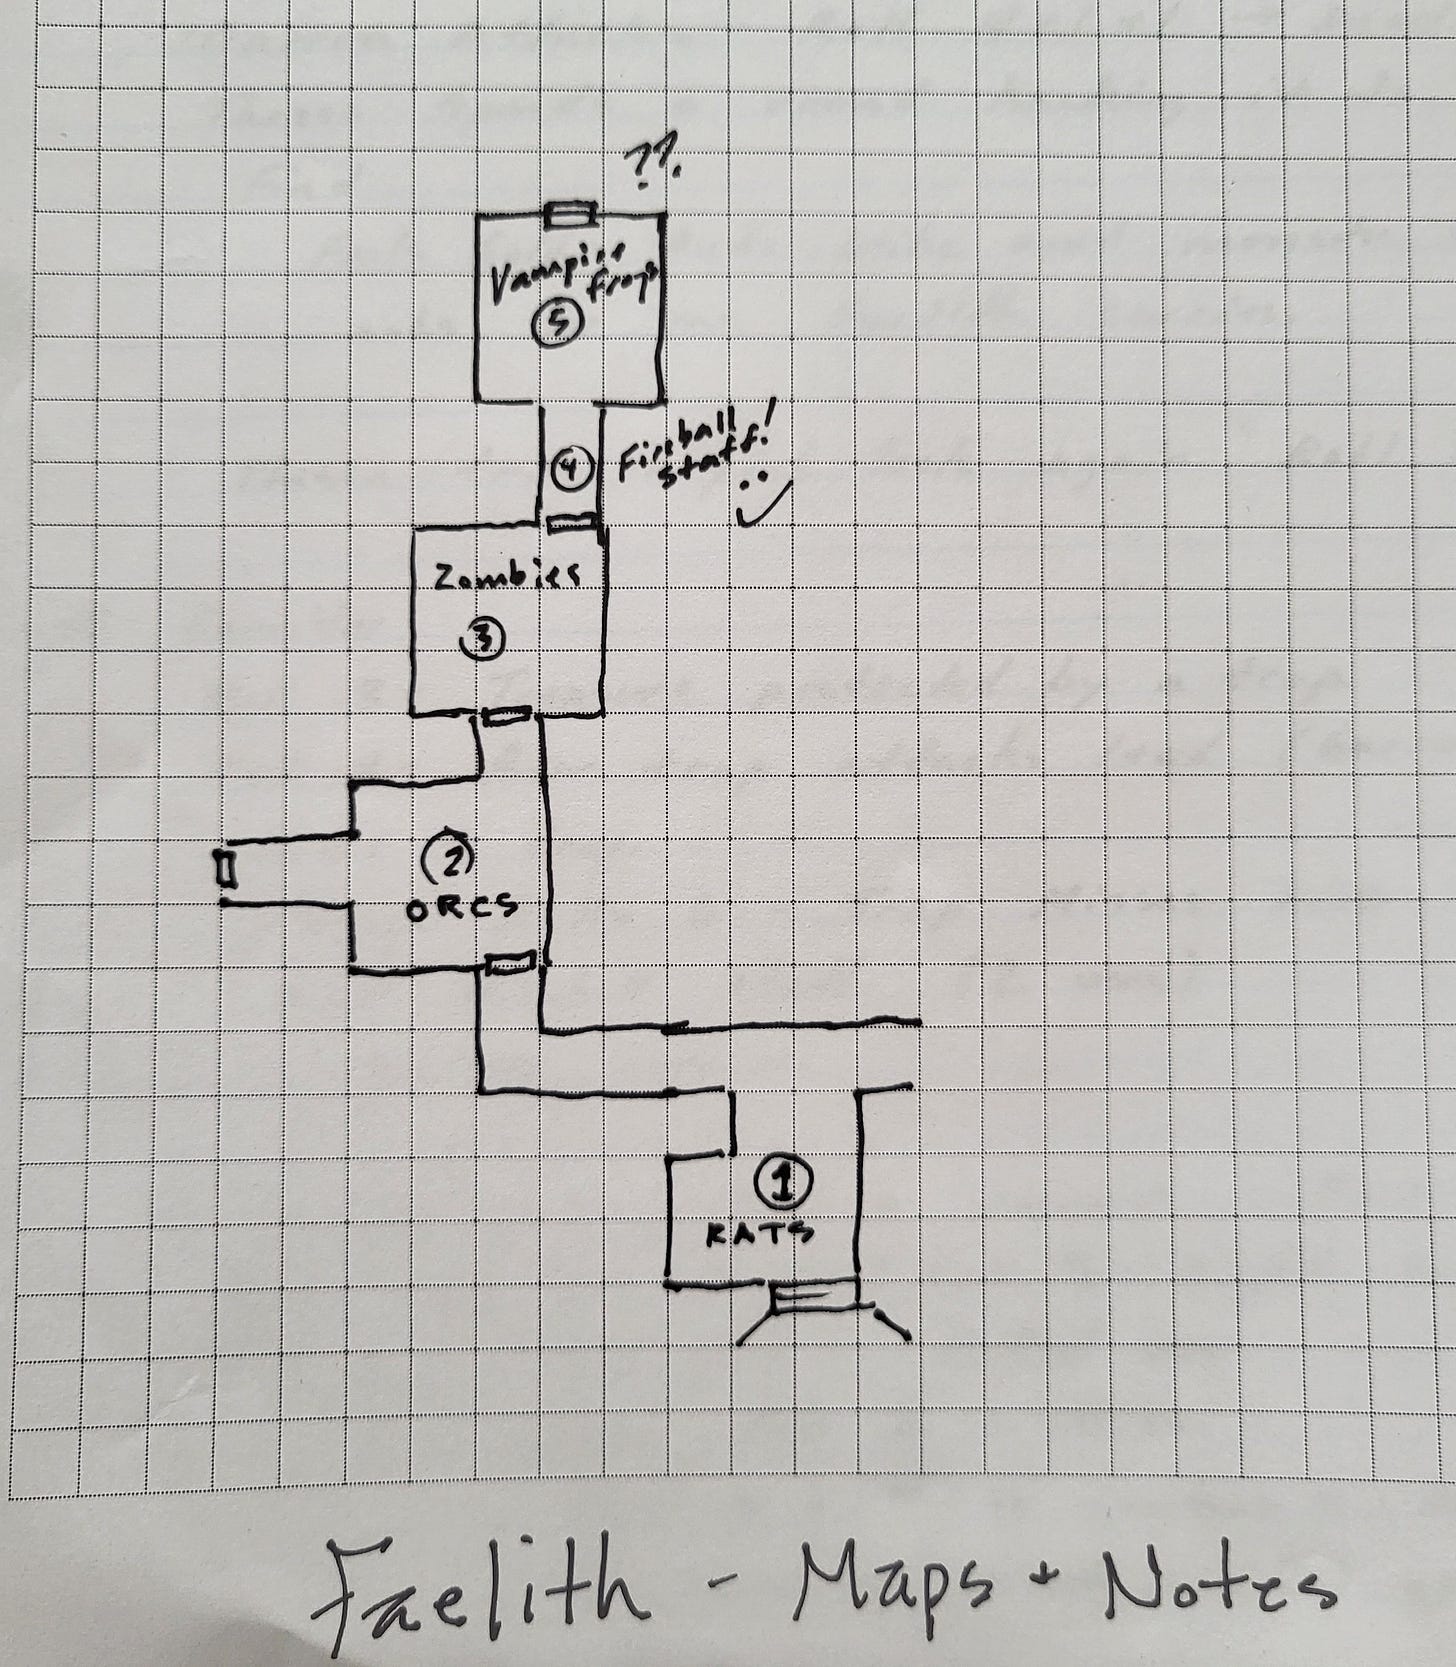 ??
Vampire
frogs
5
4
Fireball
staff!
Zombies
3
2
ORCS
1
RATS
Faelith - Maps + Notes